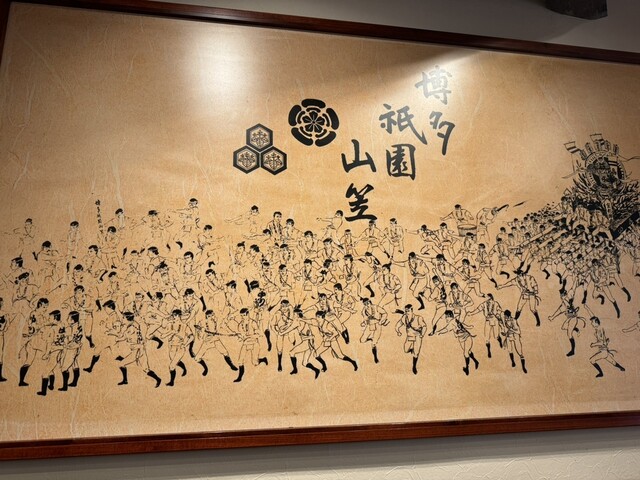 博多
祇園
山笠